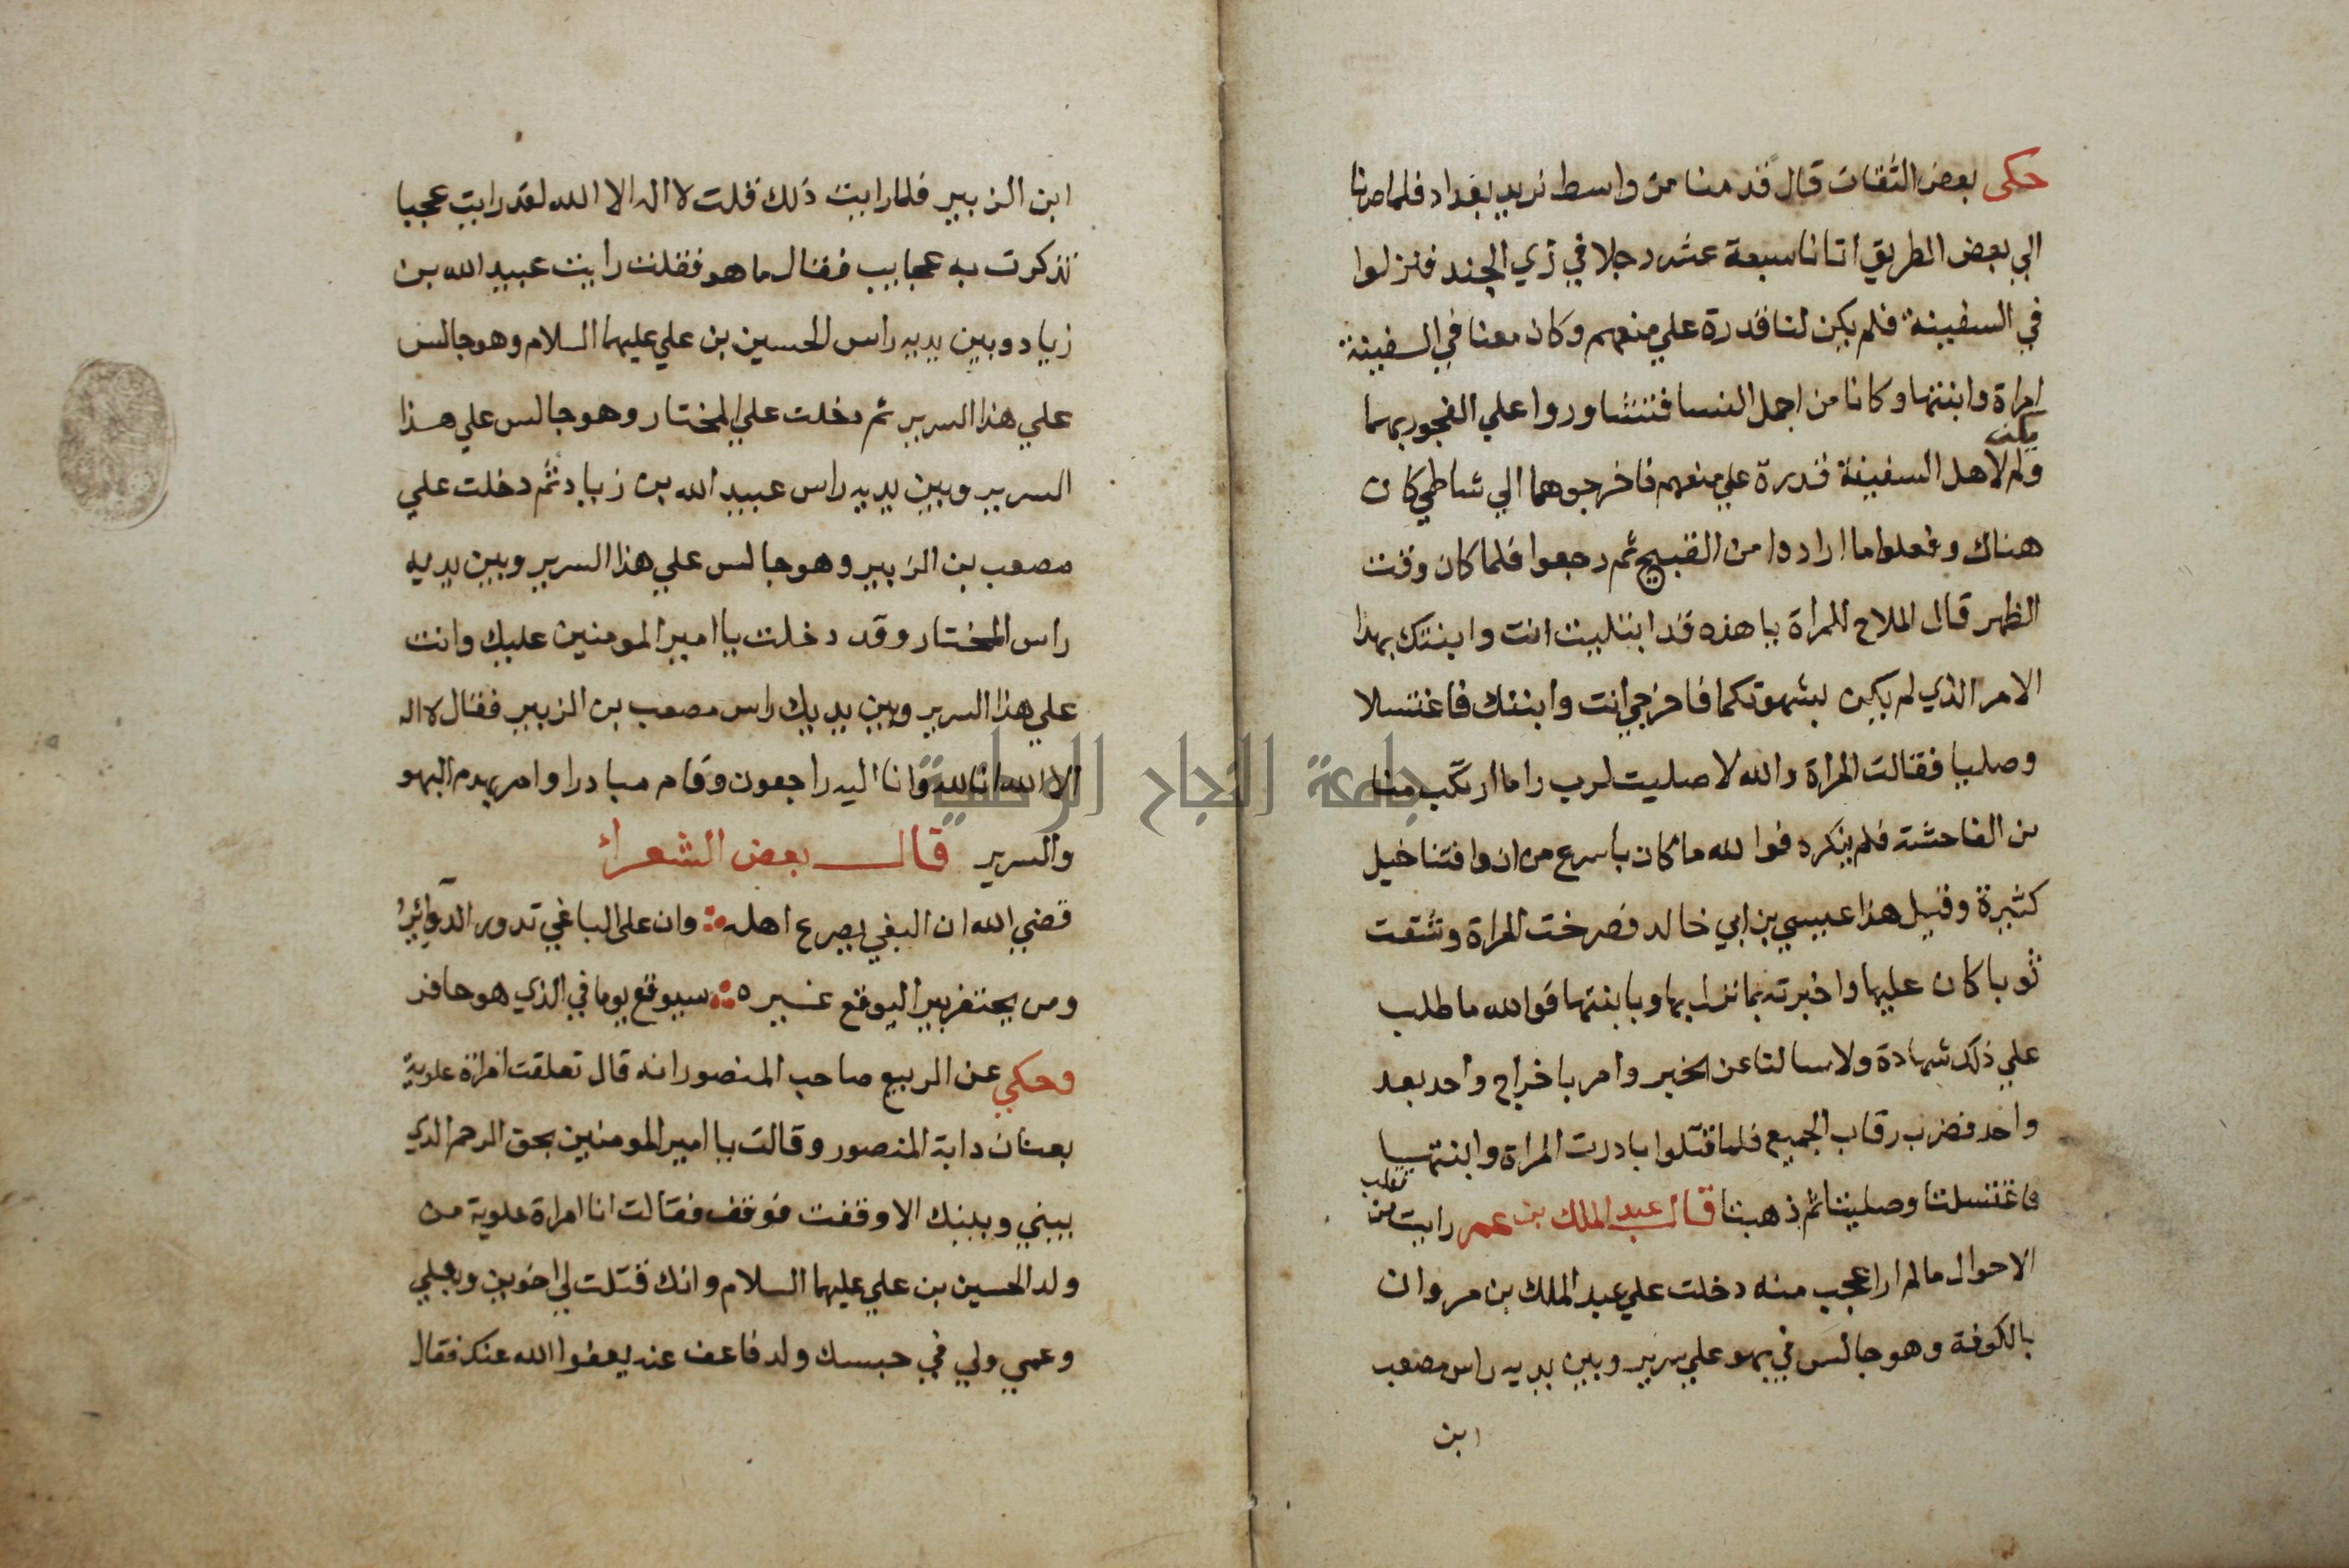 حكى بعض الثقات قال قدمنا من واسط نريد بغداد فلما صرنا
الي بعض الطريق اتانا سبعة عشر رجلا في زي الجند فنزلوا
في السفينة فلم يكن لنا قدرة علي منعهم وكان معنا في السفينة
امراة وابنتها وكانا من اجمل النسا فتشاوروا علي الفجور بهما
ولم يكن لاهل السفينة قدرة علي منعهم فاخرجوهما الي شاطي كان
هناك وفعلوا ما ارادوا من القبيح ثم رجعوا فلما كان وقت
الظهر قال الملاح للمراة يا هذه قد ابتليت انت وابنتك بهذا
الامر الذي لم يكن بشهوتكما فاخرجي انت وابنتك فاغتسلا
وصليا فقالت المراة والله لا صليت لرب راما ارتكب منا
من الفاحشة فلم ينكره فوالله ما كان بأسرع من ان وافتنا خيل
كثيرة وقيل هذا عيسي بن ابي خالد فصرخت المراة وشقت
ثوبا كان عليها واخبرته بما نزل بها وبابنتها فوالله ما طلب
علي ذلك شهادة ولا سالنا عن الخبر وامر باخراج واحد بعد
واحد فضرب رقاب الجميع فلما قتلوا بادرت المراة وابنتها
فاغتسلتا وصليتا ثم ذهبنا قال عبد الملك بن عمر رايت من تقلب
الاحوال ما لم ار اعجب منه دخلت علي عبد الملك بن مروان
بالكوفة وهو جالس في بهو علي سرير وبين يديه راس مصعب
ابن
ابن الزبير فلما رايت ذلك قلت لا اله الا الله لقد رايت عجبا
تذكرت به عجايب فقال ما هو فقلت رايت عبيد الله بن
زياد وبين يديه راس الحسين بن علي عليهما السلام وهو جالس
علي هذا السرير ثم دخلت علي المختار وهو جالس علي هذا
السرير وبين يديه راس عبيد الله بن زياد ثم دخلت علي
مصعب بن الزبير وهو جالس علي هذا السرير وبين يديه
راس المختار وقد دخلت يا امير المومنين عليك وانت
علي هذا السرير وبين يديك راس مصعب بن الزبير فقال لا اله
الا الله انا لله وانا اليه راجعون وقام مبادرا وامر بهدم البهو
والسرير قال بعض الشعرا
قضي الله ان البغي يصرع اهله وان على الباغي تدور الدوائر
ومن يحتفر بيرا ليوقع غيره سيوقع يوما في الذي هو حافر
وحكي عن الربيع صاحب المنصور انه قال تعلقت امراة علوية
بعنان دابة المنصور وقالت يا امير المومنين بحق الرحم الذي
بيني وبينك الا وقفت فوقف فقالت انا امراة علوية من
ولد الحسين بن علي عليهما السلام وانك قتلت لي اخوين وبعلي
وعمي ولي في حبسك ولد فاعف عنه يعفوا الله عنك فقال
جامعة النجاح الوطنية